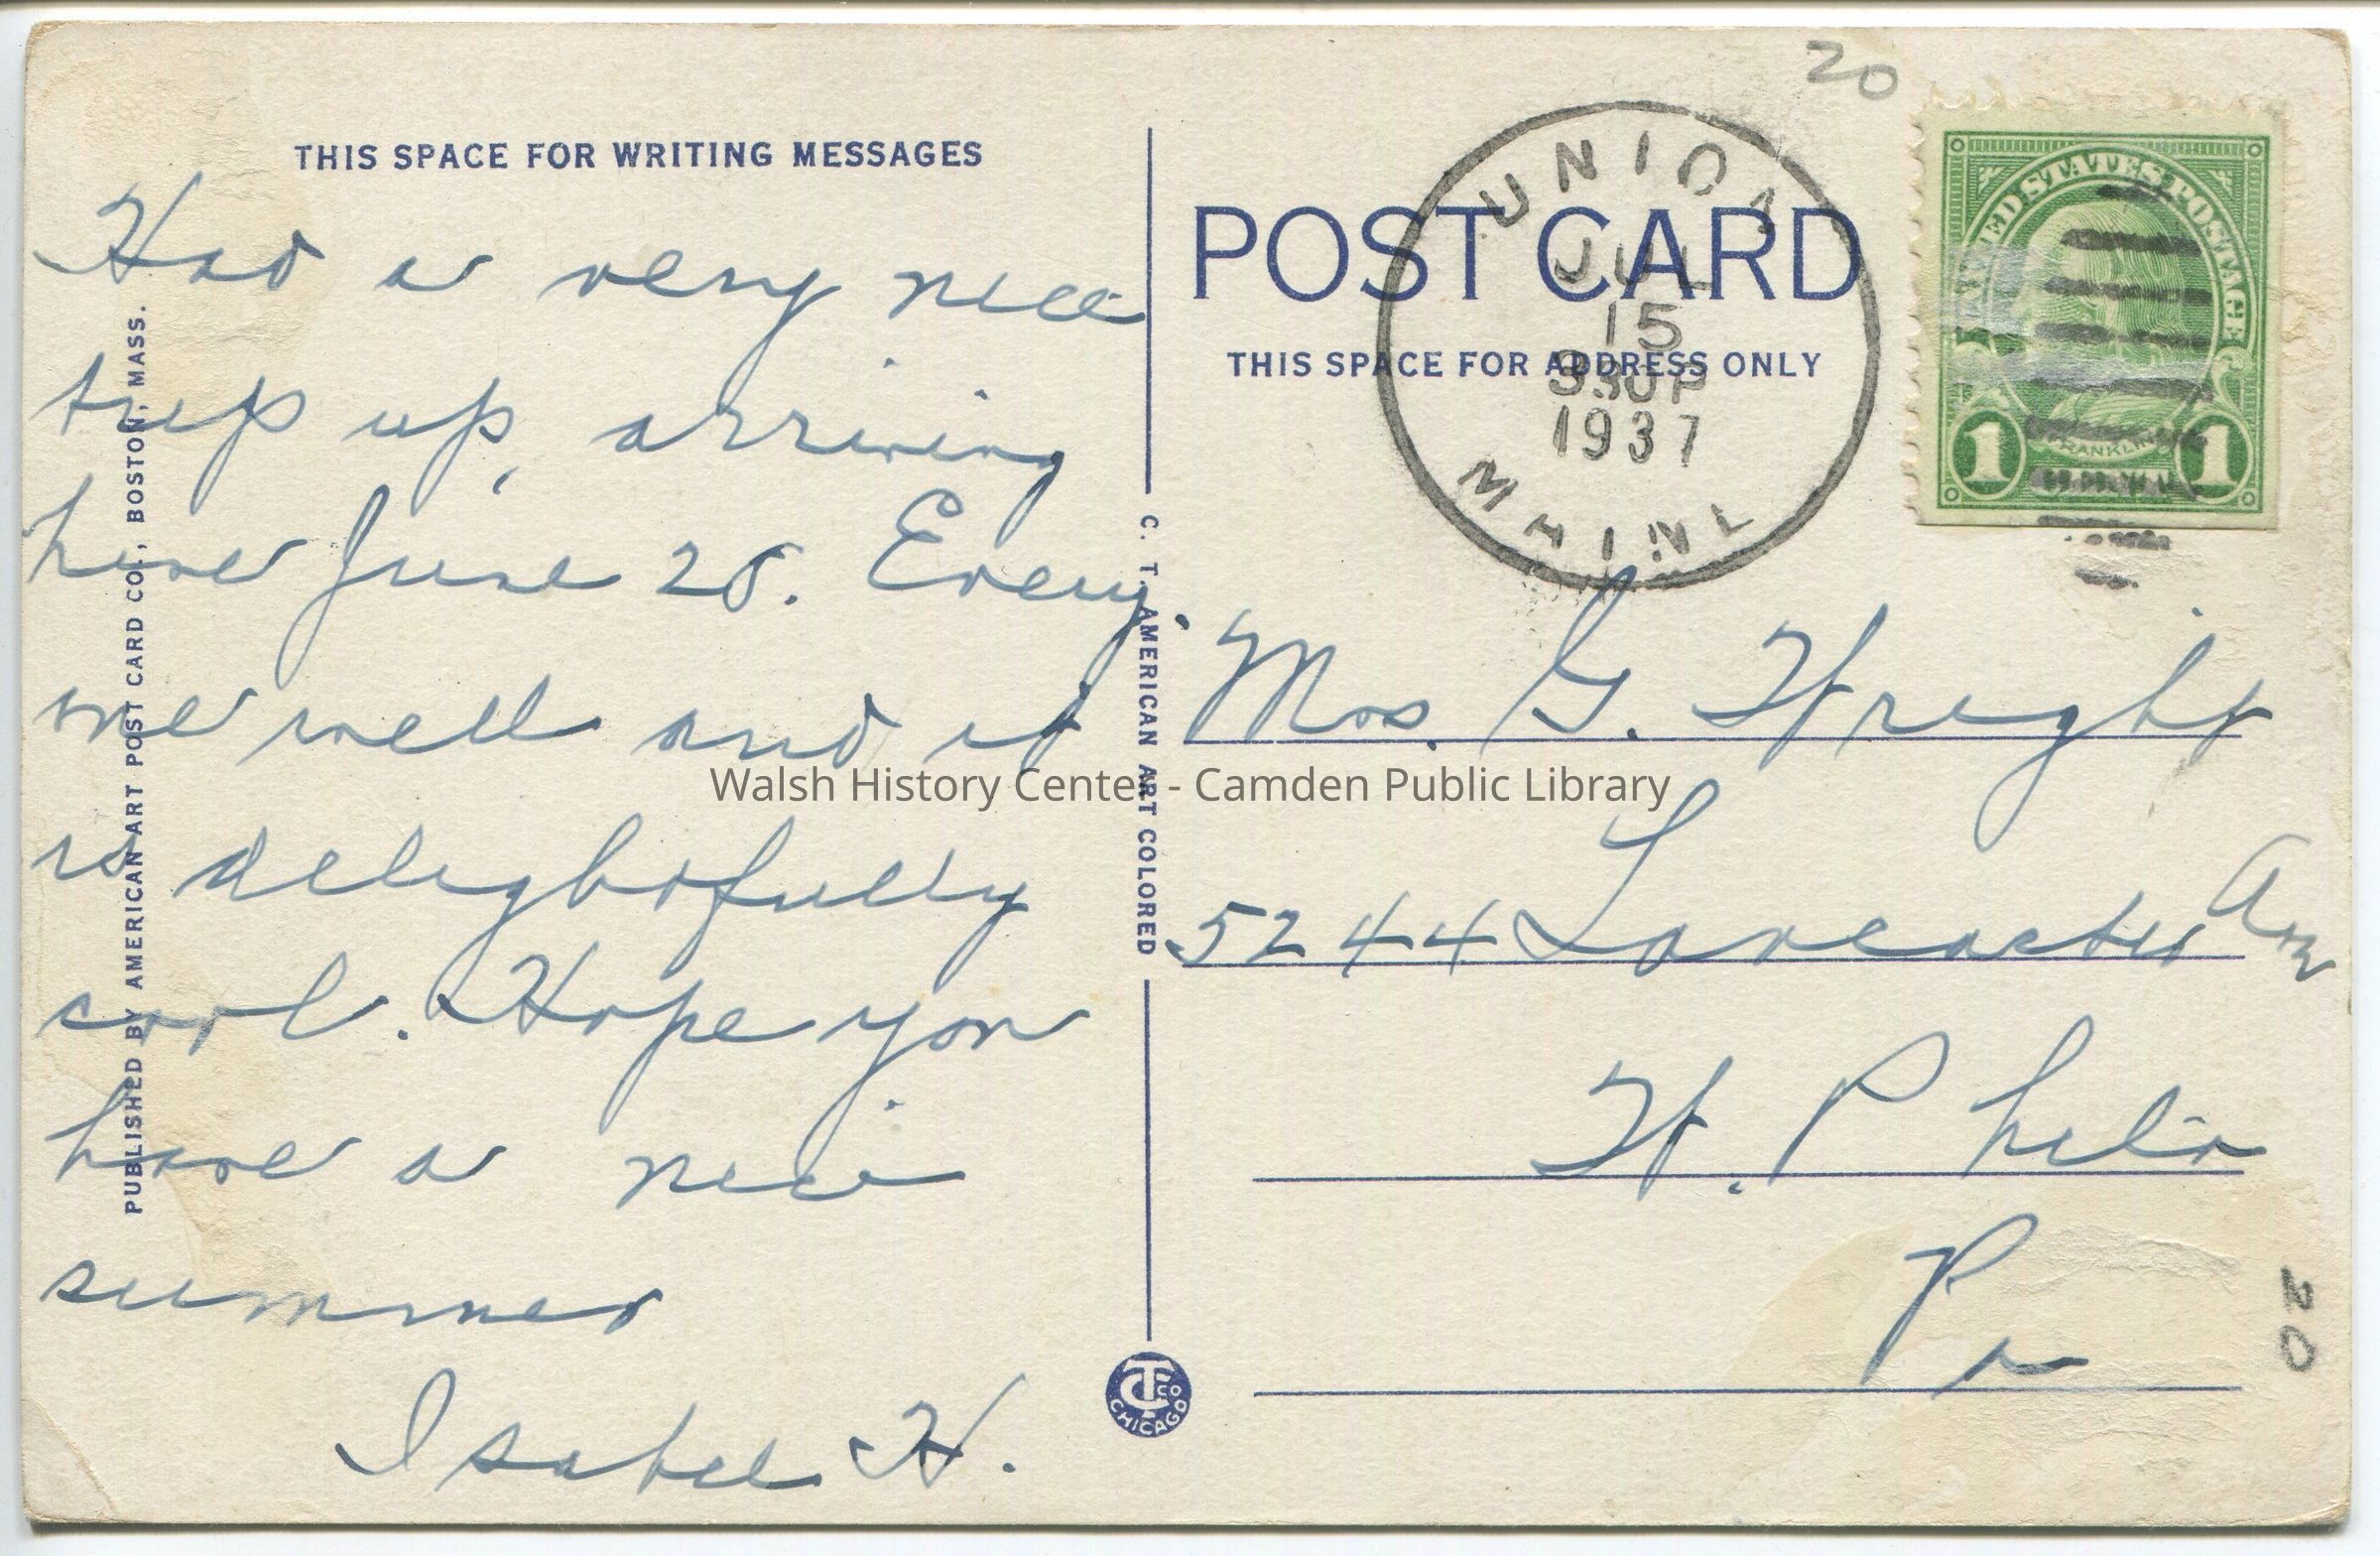 20
THIS SPACE FOR WRITING MESSAGES
Had a very nice
trip up, arriving
here June 28. Every
one well and it
is delightfully
cool. Hope you
have a nice
summer
Isabel H.
PUBLISHED BY AMERICAN ART POST CARD CO., BOSTON, MASS.
C. T. AMERICAN ART COLORED
CT CO
CHICAGO
POST CARD
THIS SPACE FOR ADDRESS ONLY
UNION
JUL
15
330P
1937
MAINE
UNITED STATES POSTAGE
FRANKLIN
1 1
Mrs. G. Wright
5244 Lancaster Ave
W. Phila
Pa
20
Walsh History Center - Camden Public Library